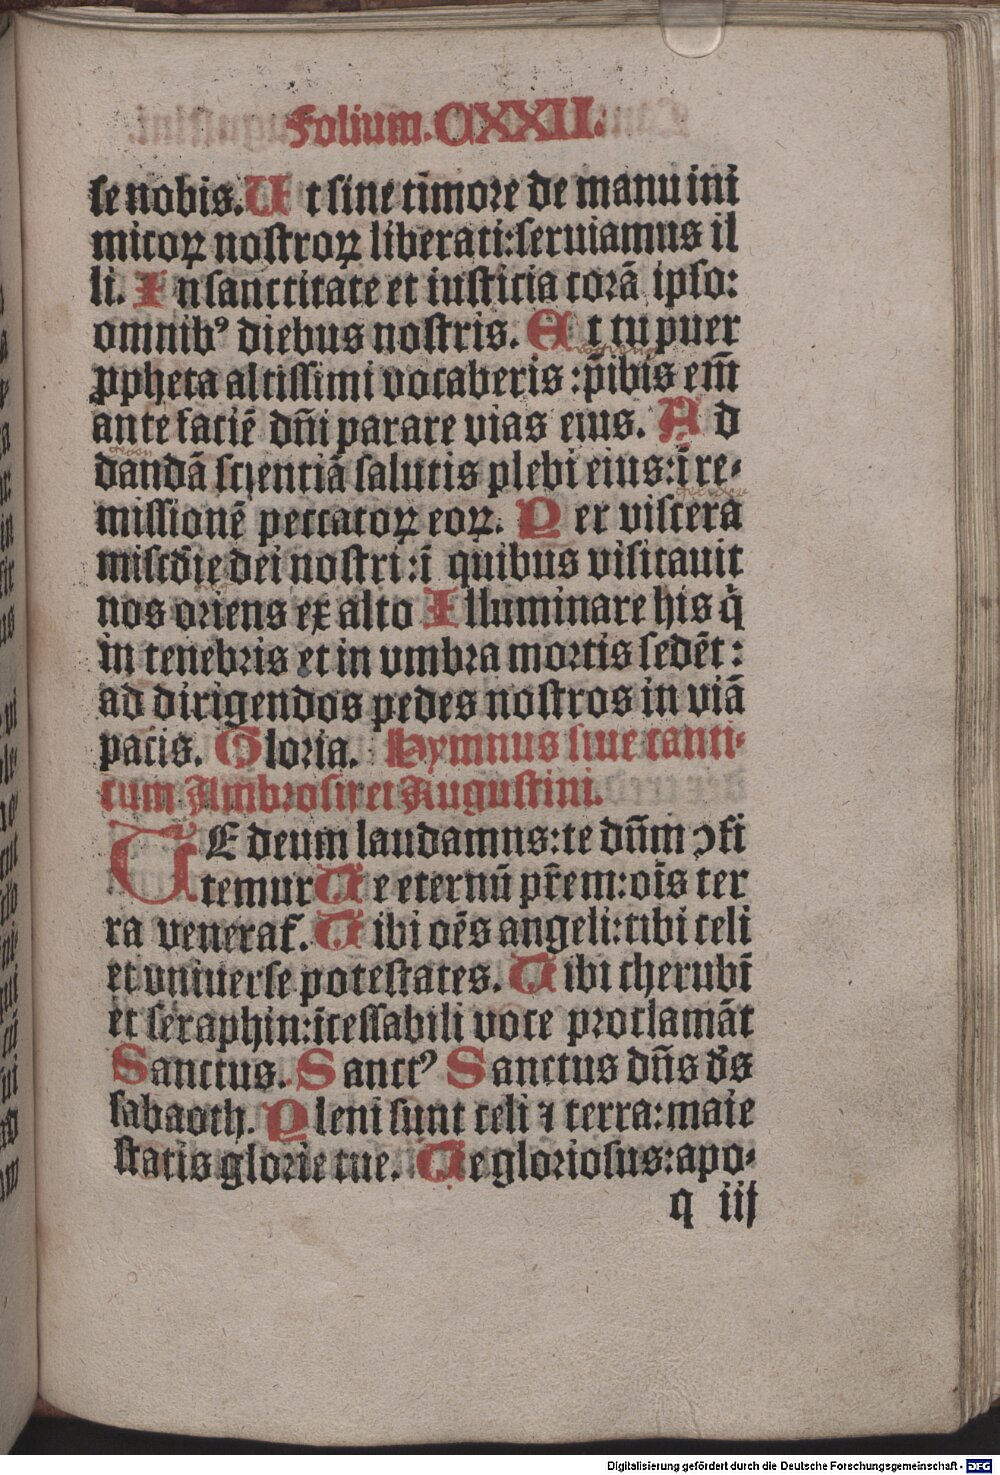 Folium. CXXII.
se nobis. Ut sine timore de manu ini
micoꝝ nostroꝝ liberati: seruiamus il
li. In sanctitate et iusticia corā ipso:
omnibꝰ diebus nostris. Et tu puer
ꝓpheta altissimi vocaberis: p̄ibis em̄
ante faciē dn̄i parare vias eius. Ad
dandā scientiā salutis plebi eius: ī re-
missionē peccatoꝝ eoꝝ. Per viscera
misc̄die dei nostri: ī quibus visitauit
nos oriens ex alto Illuminare his q̄
in tenebris et in vmbra mortis sedēt:
ad dirigendos pedes nostros in viā
pacis. Gloria. Hymnus siue canti-
cum Ambrosii et Augustini.
TE deum laudamus: te dn̄m ꝯfi
temur Te eternū pr̄em: oīs ter
ra venerat᷒. Tibi oēs angeli: tibi celi
et vniuerse potestates. Tibi cherubī
et seraphin: īcessabili voce proclamāt
Sanctus. Sanctꝰ Sanctus dn̄s d̄s
sabaoth. Pleni sunt celi ⁊ terra: maie
statis glorie tue. Te gloriosus: apo-
q iij
Digitalisierung gefördert durch die Deutsche Forschungsgemeinschaft - DFG